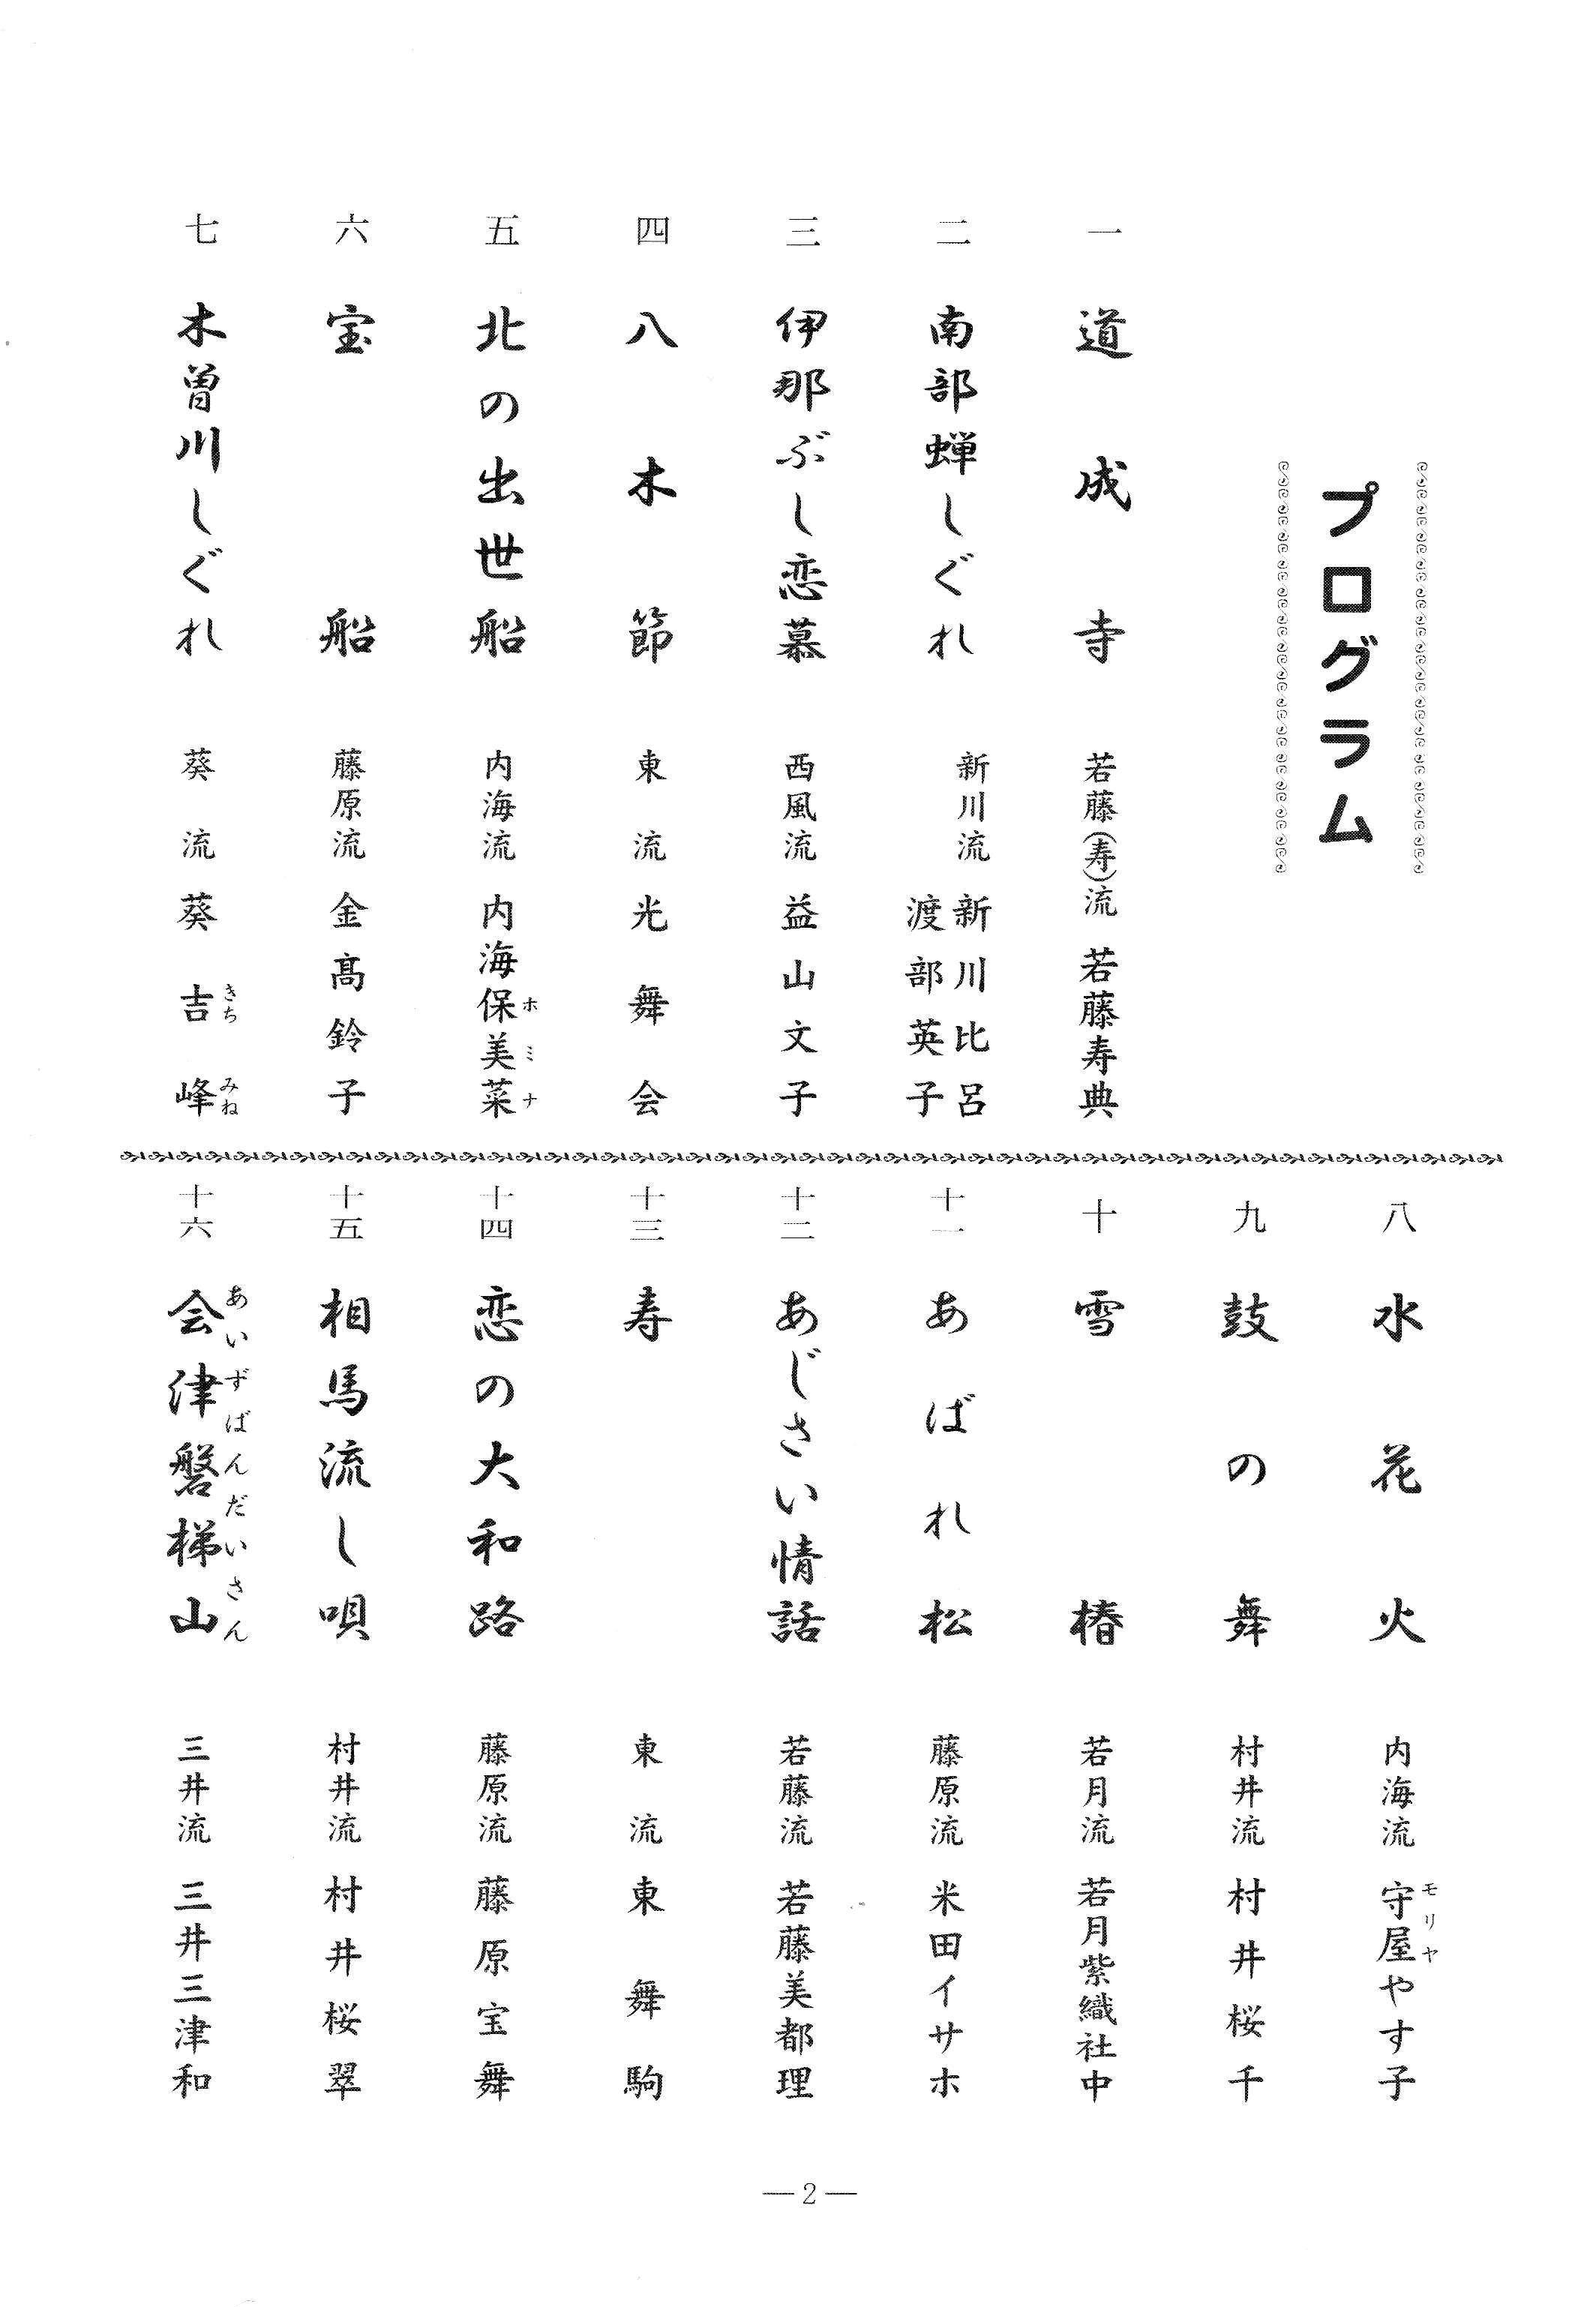 プログラム
一 道成寺 若藤(寿)流 若藤寿典
二 南部蝉しぐれ 新川流 新川比呂
渡部英子
三 伊那ぶし恋慕 西風流 益山文子
四 八木節 東流 光舞会
五 北の出世船 内海流 内海保美菜
ホミナ
六 宝船 藤原流 金高鈴子
七 木曽川しぐれ 葵流 葵吉峰
きちみね
八 水花火 内海流 守屋やす子
モリヤ
九 鼓の舞 村井流 村井桜千
十 雪椿 若月流 若月紫織社中
十一 あばれ松 藤原流 米田イサホ
十二 あじさい情話 若藤流 若藤美都理
十三 寿 東流 東舞駒
十四 恋の大和路 藤原流 藤原宝舞
十五 相馬流し唄 村井流 村井桜翠
十六 会津磐梯山 三井流 三井三津和
あいずばんだいさん
— 2 —